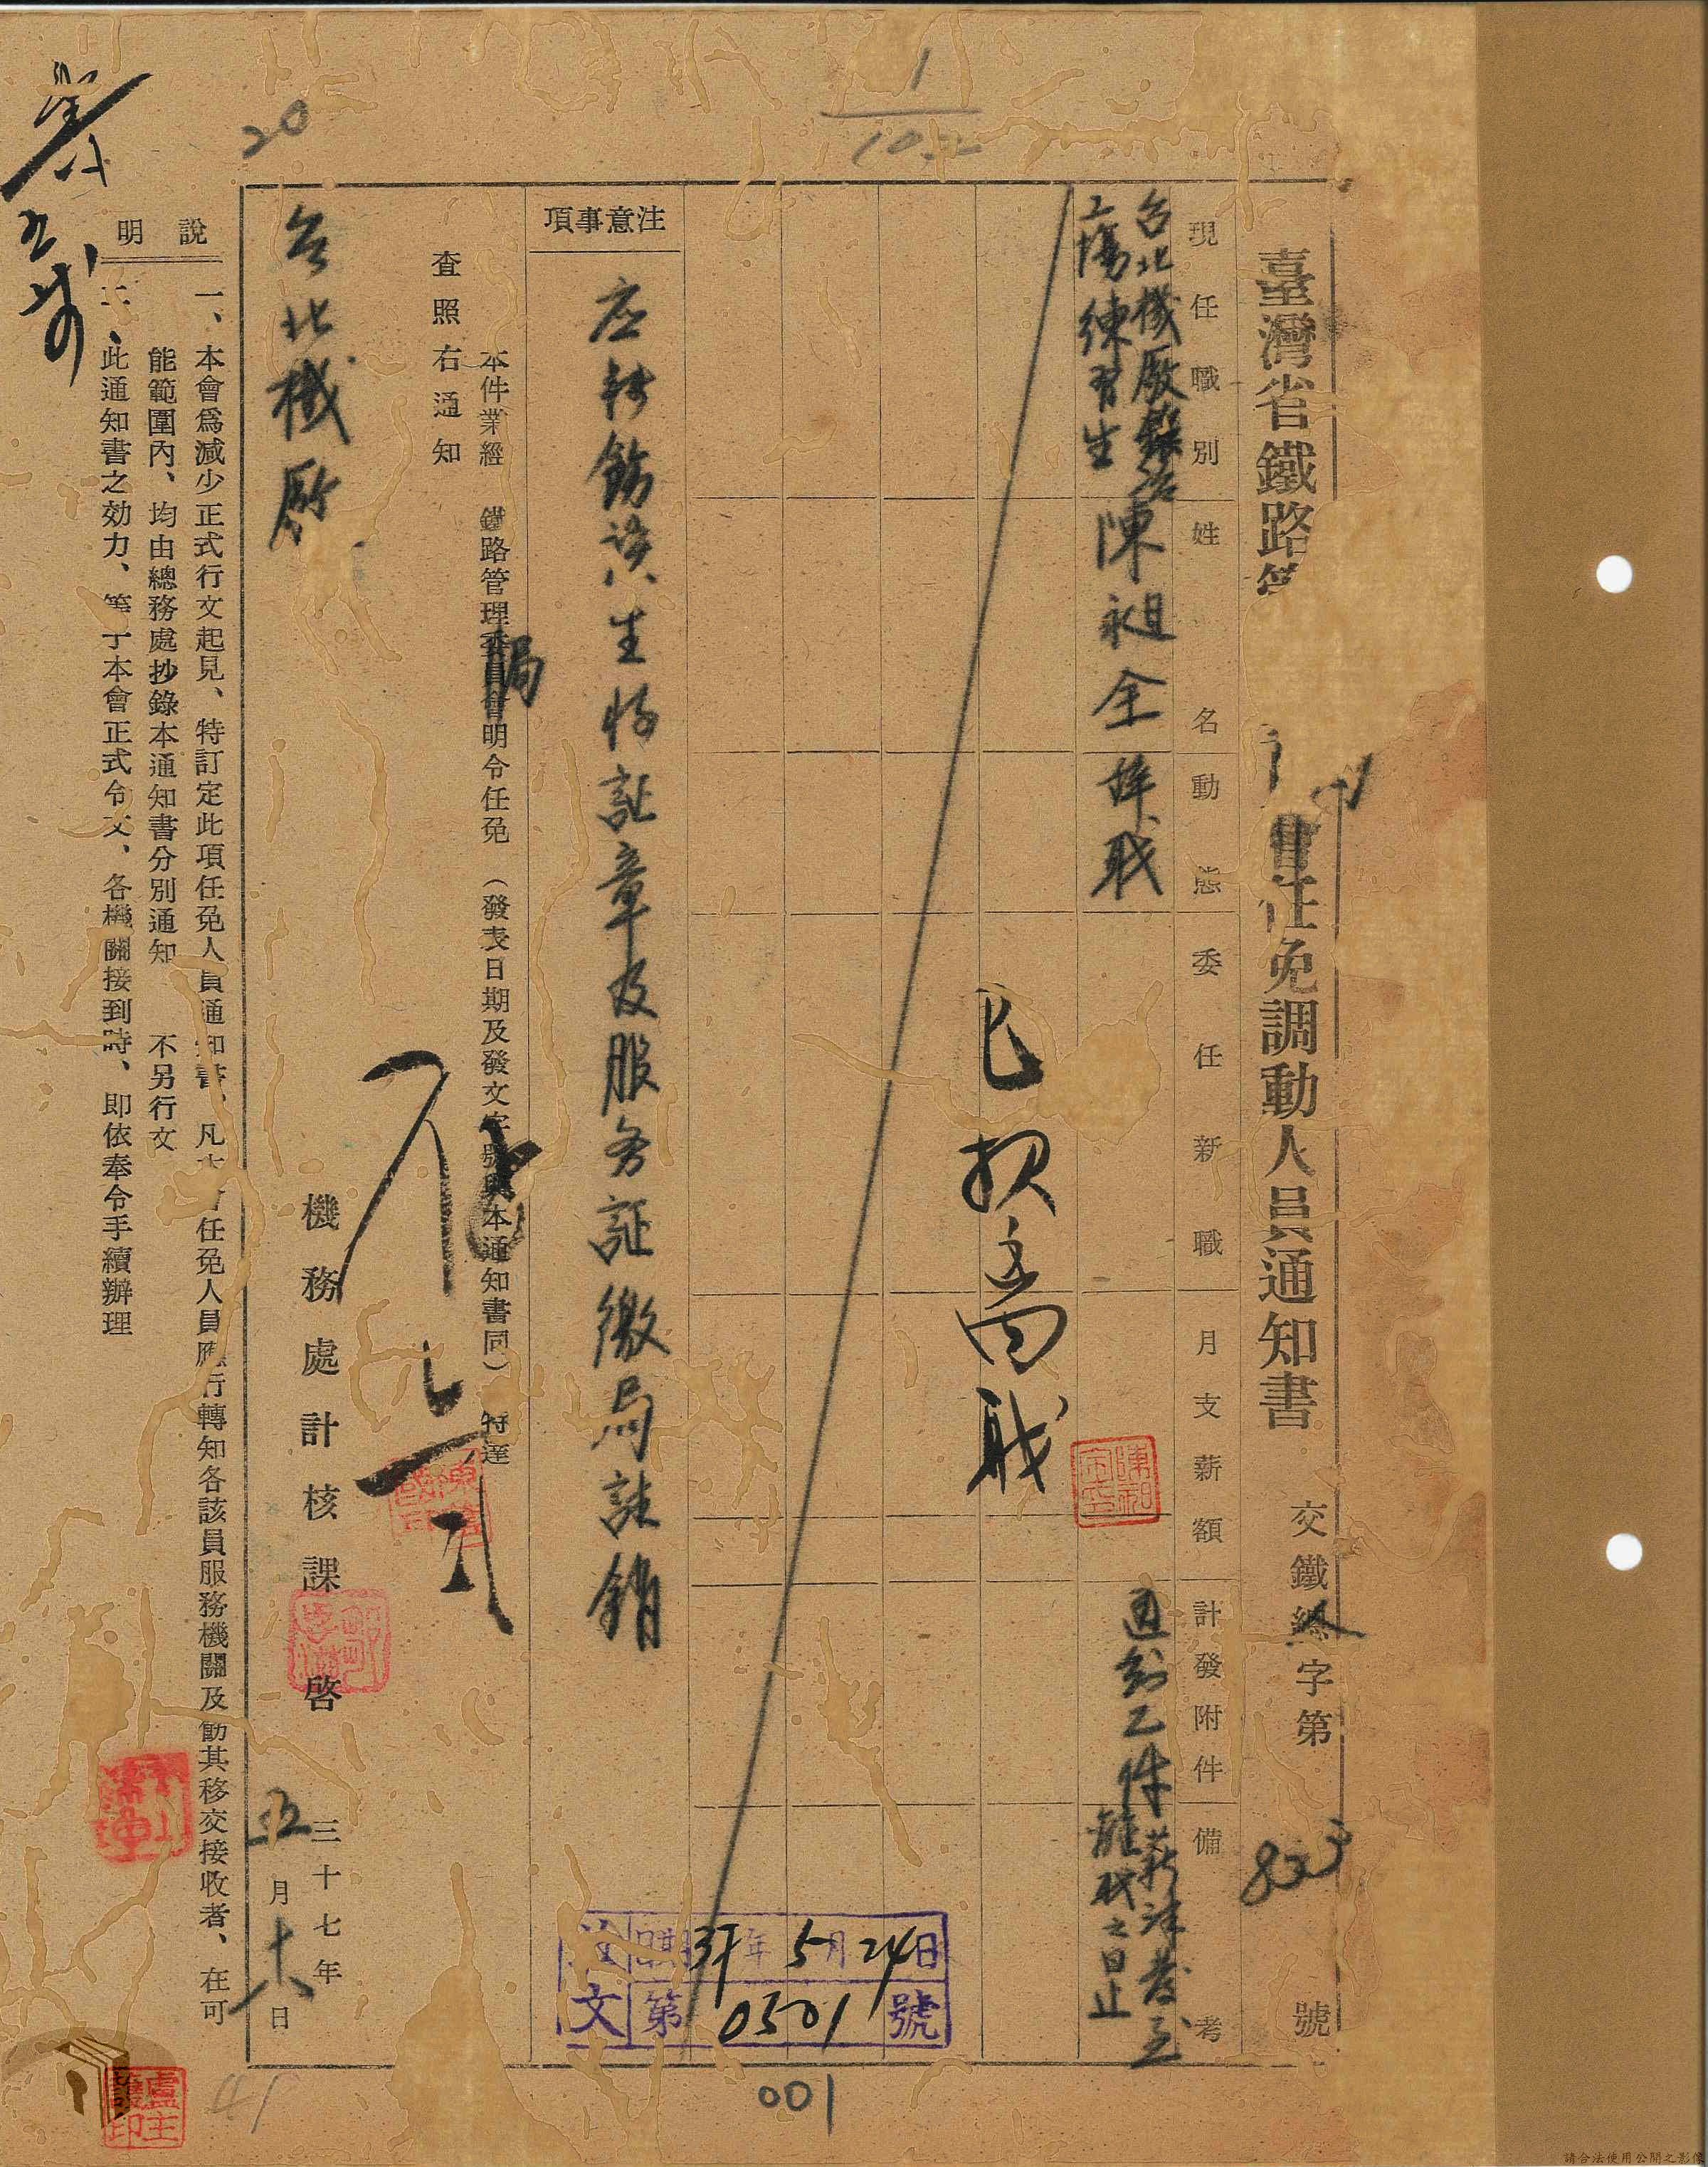 臺灣省鐵路
員任免調動人員通知書
交鐵人字第 823 號
現任職別
姓名
動態
委任新職
月支薪額
計發附件
備考
台北機廠鍛冶
工場練習生
陳祖全
准辭職
通知乙件
薪津發至
離職之日止
已批離職
注意事項
應轉飭該生將証章及服务証繳局註銷
本件業經 鐵路管理委員會明令任免 (發表日期及發文字號與本通知書同) 特達
局
查照右通知
台北機厰
機務處計核課啓
三十七年
五月十八日
說明
一、本會爲減少正式行文起見、特訂定此項任免人員通知書、凡本會任免人員應行轉知各該員服務機關及飭其移交接收者、在可
能範圍內、均由總務處抄錄本通知書分別通知 不另行文
二、此通知書之効力、等于本會正式令文、各機關接到時、即依奉令手續辦理
收文
37年5月24日
第0501號
1
102
20
41
001
盧主護印
請合法使用公開之影像